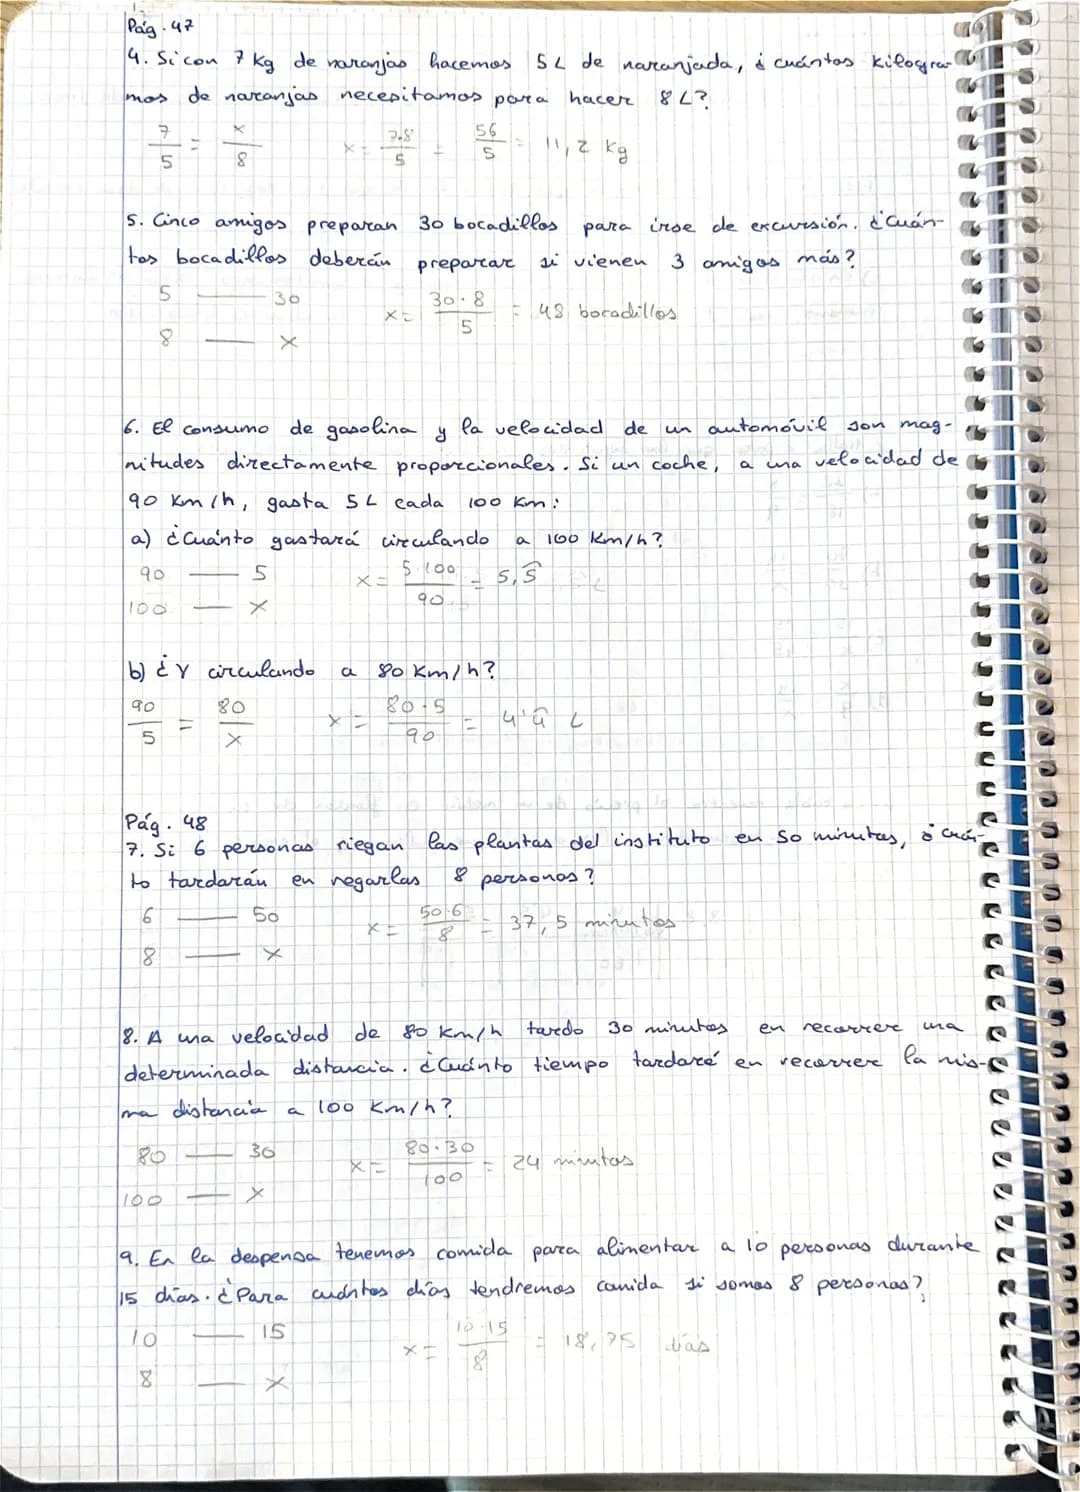 Pág. 47
4. Si con 7 kg de naranjas hacemos 5 L de naranjada, ¿ cuántos kilogra-
mos de naranjas necesitamos para hacer 8 L?
7/5 = x/8 x = 7·8/5 = 56/5 = 11,2 kg
5. Cinco amigos preparan 30 bocadillos para irse de excursión. ¿Cuán-
tos bocadillos deberán preparar si vienen 3 amigos más?
5 — 30 x = 30·8/5 = 48 bocadillos
8 — x
6. El consumo de gasolina y la velocidad de un automóvil son mag-
nitudes directamente proporcionales. Si un coche, a una velocidad de
90 Km/h, gasta 5 L cada 100 Km:
a) ¿Cuánto gastará circulando a 100 Km/h?
90 — 5 x = 5·100/90 = 5,5̂
100 — x
b) ¿Y circulando a 80 Km/h?
90/5 = 80/x x = 80·5/90 = 4'4̂ L
Pág. 48
7. Si 6 personas riegan las plantas del instituto en 50 minutos, ¿ cuán-
to tardarán en regarlas 8 personas?
6 — 50 x = 50·6/8 = 37,5 minutos
8 — x
8. A una velocidad de 80 Km/h tardo 30 minutos en recorrer una
determinada distancia. ¿Cuánto tiempo tardaré en recorrer la mis-
ma distancia a 100 Km/h?
80 — 30 x = 80·30/100 = 24 minutos
100 — x
9. En la despensa tenemos comida para alimentar a 10 personas durante
15 días. ¿Para cuántos días tendremos comida si somos 8 personas?
10 — 15 x = 10·15/8 = 18,75 días
8 — x